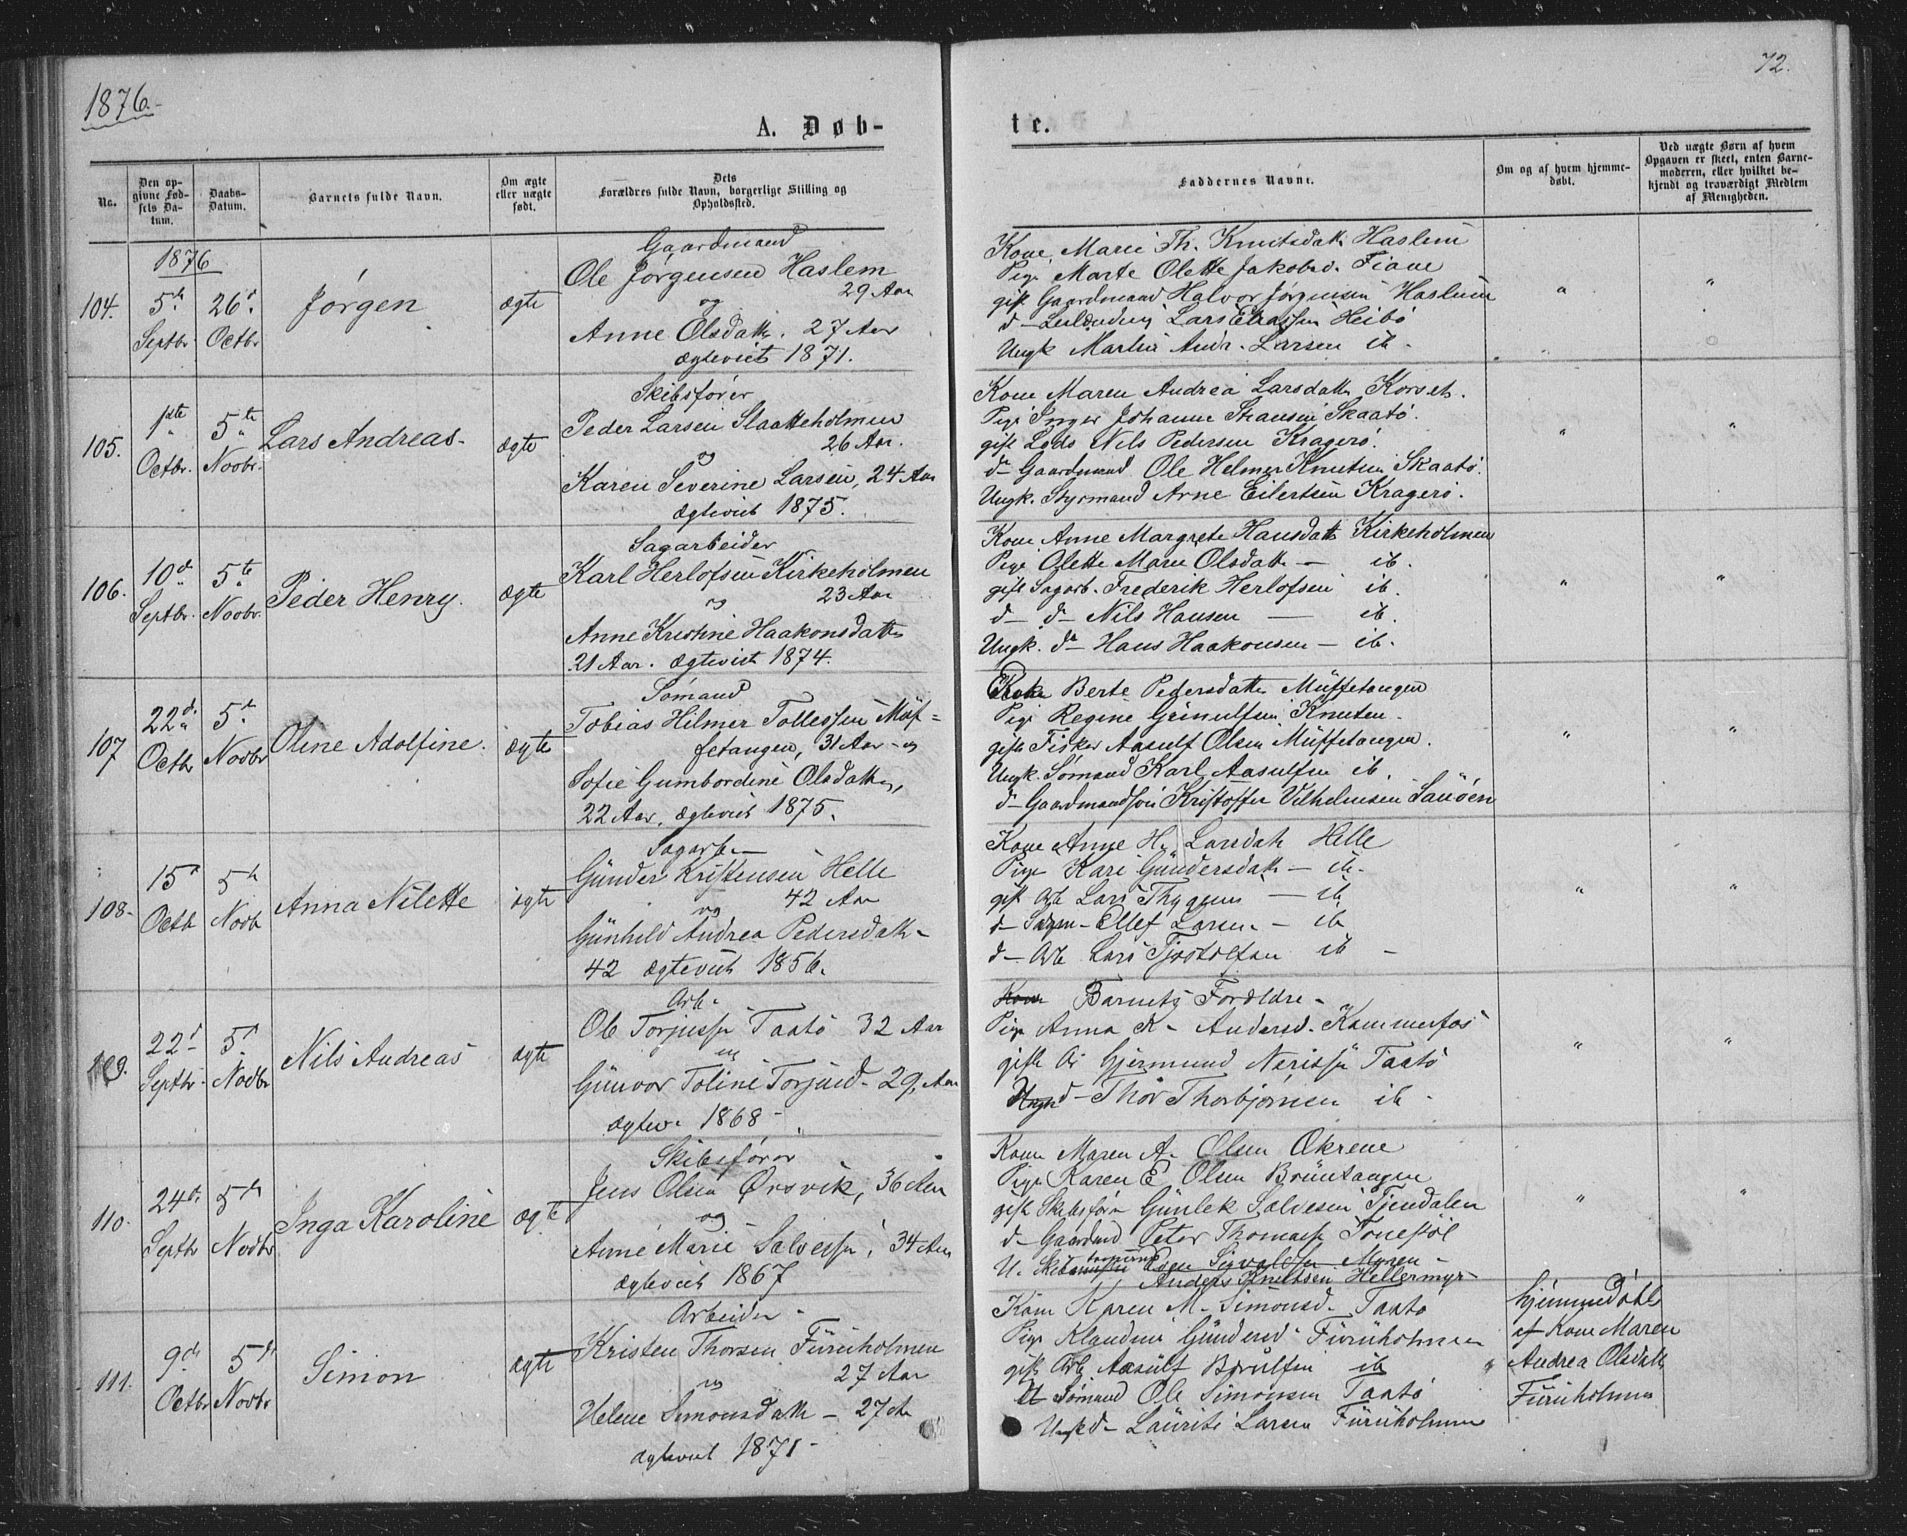 1876.
72.
A. Døb-
te.
No.
Den op-
givne Fød-
sels Da-
tum.
Daabs-
Datum.
Barnets fulde Navn.
Om ægte
eller uægte
født.
Dets
Forældres fulde Navn, borgerlige Stilling og
Opholdssted.
Faddernes Navne.
Om og af hvem hjemme-
døbt.
Ved uægte Børn af hvem
Opgaven er skeet, enten Barne-
moderen, eller hvilket be-
kjendt og troværdigt Medlem
af Menigheden.
1876
104.
5te
Septbr.
26d.
Octbr
Jørgen
ægte
Gaardmand
Ole Jørgensen Haslem
29 Aar
og
Anne Olsdatt. 27 Aar
ægteviet 1871.
Kone Marie Th. Knutsdatt. Haslem
Pige Marte Olette Jakobsd. Fiane
gift Gaardmand Halvor Jørgensen Haslem
d- Lars Eliassen Heibø
Ungk Martin Andr. Larsen ib.
" "
105.
1ste
Octbr.
5te
Novbr.
Lars Andreas.
ægte
Skibsfører
Peder Larsen Slaatteholmen
26 Aar.
og
Karen Severine Larsen, 24 Aar
ægteviet 1875.
Kone Maren Andrea Larsdatt. Korset.
Pige Inger Johanne Hansen Skaatø.
gift Lods Nils Pedersen Kragerø.
d- Gaardmand Ole Helmer Knutsen Skaatø.
Ungk. Styrmand Arne Eilertsen Kragerø.
" "
106.
10d
Septbr.
5te
Novbr.
Peder Henry.
ægte
Sagarbeider
Karl Herlofsen Kirkeholmen
23 Aar
og
Anne Kristine Haakonsdatt.
21 Aar. ægteviet 1874.
Kone Anne Margrete Hansdatt. Kirkeholmen
Pige Olette Marie Olsdatt. — ib.
gift Sagarb. Frederik Herlofsen ib.
d- d- Nils Hansen — ib.
Ungk. d- Hans Haakonsen - ib.
" "
107
22d.
Octbr
5t
Novbr
Oline Adolfine.
ægte
Sømand
Tobias Hilmer Tollefsen Müf-
fetangen, 31 Aar - og
Sofie Gumbordine Olsdatter,
22 Aar, ægteviet 1875.
Kone Berte Pedersdatter Müffetangen
Pige Regine Knuten.
gift Fisker Aasulf Olsen Müffetangen.
Ungk. Sømand Karl Aasulfsen ib.
d- Gaardmandssøn Kristoffer Vilhelmsen Saüøen
" "
108.
15d
Octb
5te
Novb.
Anna Nilette
ægte
Sagarb.
Günder Kristensen Helle
42 Aar
og
Günhild Andrea Pedersdatt.
42 ægteviet 1856.
Kone Anne H. Larsdatt Helle
Pige Kari Gündersdatt. - ib.
gift Arb Lars Thygesen — ib
d- Ellef Larsen - ib
d- Arb. Lars Tjostolfsen ib -
" "
109.
22d
Septbr.
5d
Novbr
Nils Andreas
ægte
Arb.
Ole Torjussen Taatø 32 Aar
og
Günvor Toline Torjusd. 29 Aar
ægtev. 1868 -
Kone Barnets Forældre -
Pige Anna K. Andersd. Kammerfos
gift Ar Gjermund Nerissen Taatø
Ungk d- Thor Thorbjørnsen ib -
" "
110.
24d.
Septbr
5te
Novbr
Inga Karoline
ægte
Skibsfører
Jens Olsen Ørsvik, 36 Aar
og
Anne Marie Salvesen, 34 Aar
ægteviet 1867
Kone Maren A. Olsen Økrene
Pige Karen E Olsen Brüntangen
gift Skibsfører Günlek Salvesen Tjendalen
d- Gaardmd Peter Thomassen Tonestøl
U. Sigvaldsen Myren -
Anders Knutsen Hellermyr
" "
111.
9de
Octbr
5te
Novbr
Simon
ægte
Arbeider -
Kristen Thorsen Füruholmen
27 Aar
og
Helene Simonsdatt. - 27 Aar
ægteviet 1871 -
Kone Karen M. Simonsd. Taatø
Pige Klaudine Gündersd. Füruholmen
gift Arb. Aasulf Brülfsen ib
U Sømand Ole Simonsen Taatø
Ungk d- Laürits Larsen Füruholmen
hjemmedøbt
af Kone Maren
Andrea Olsdatt
Füruholmen